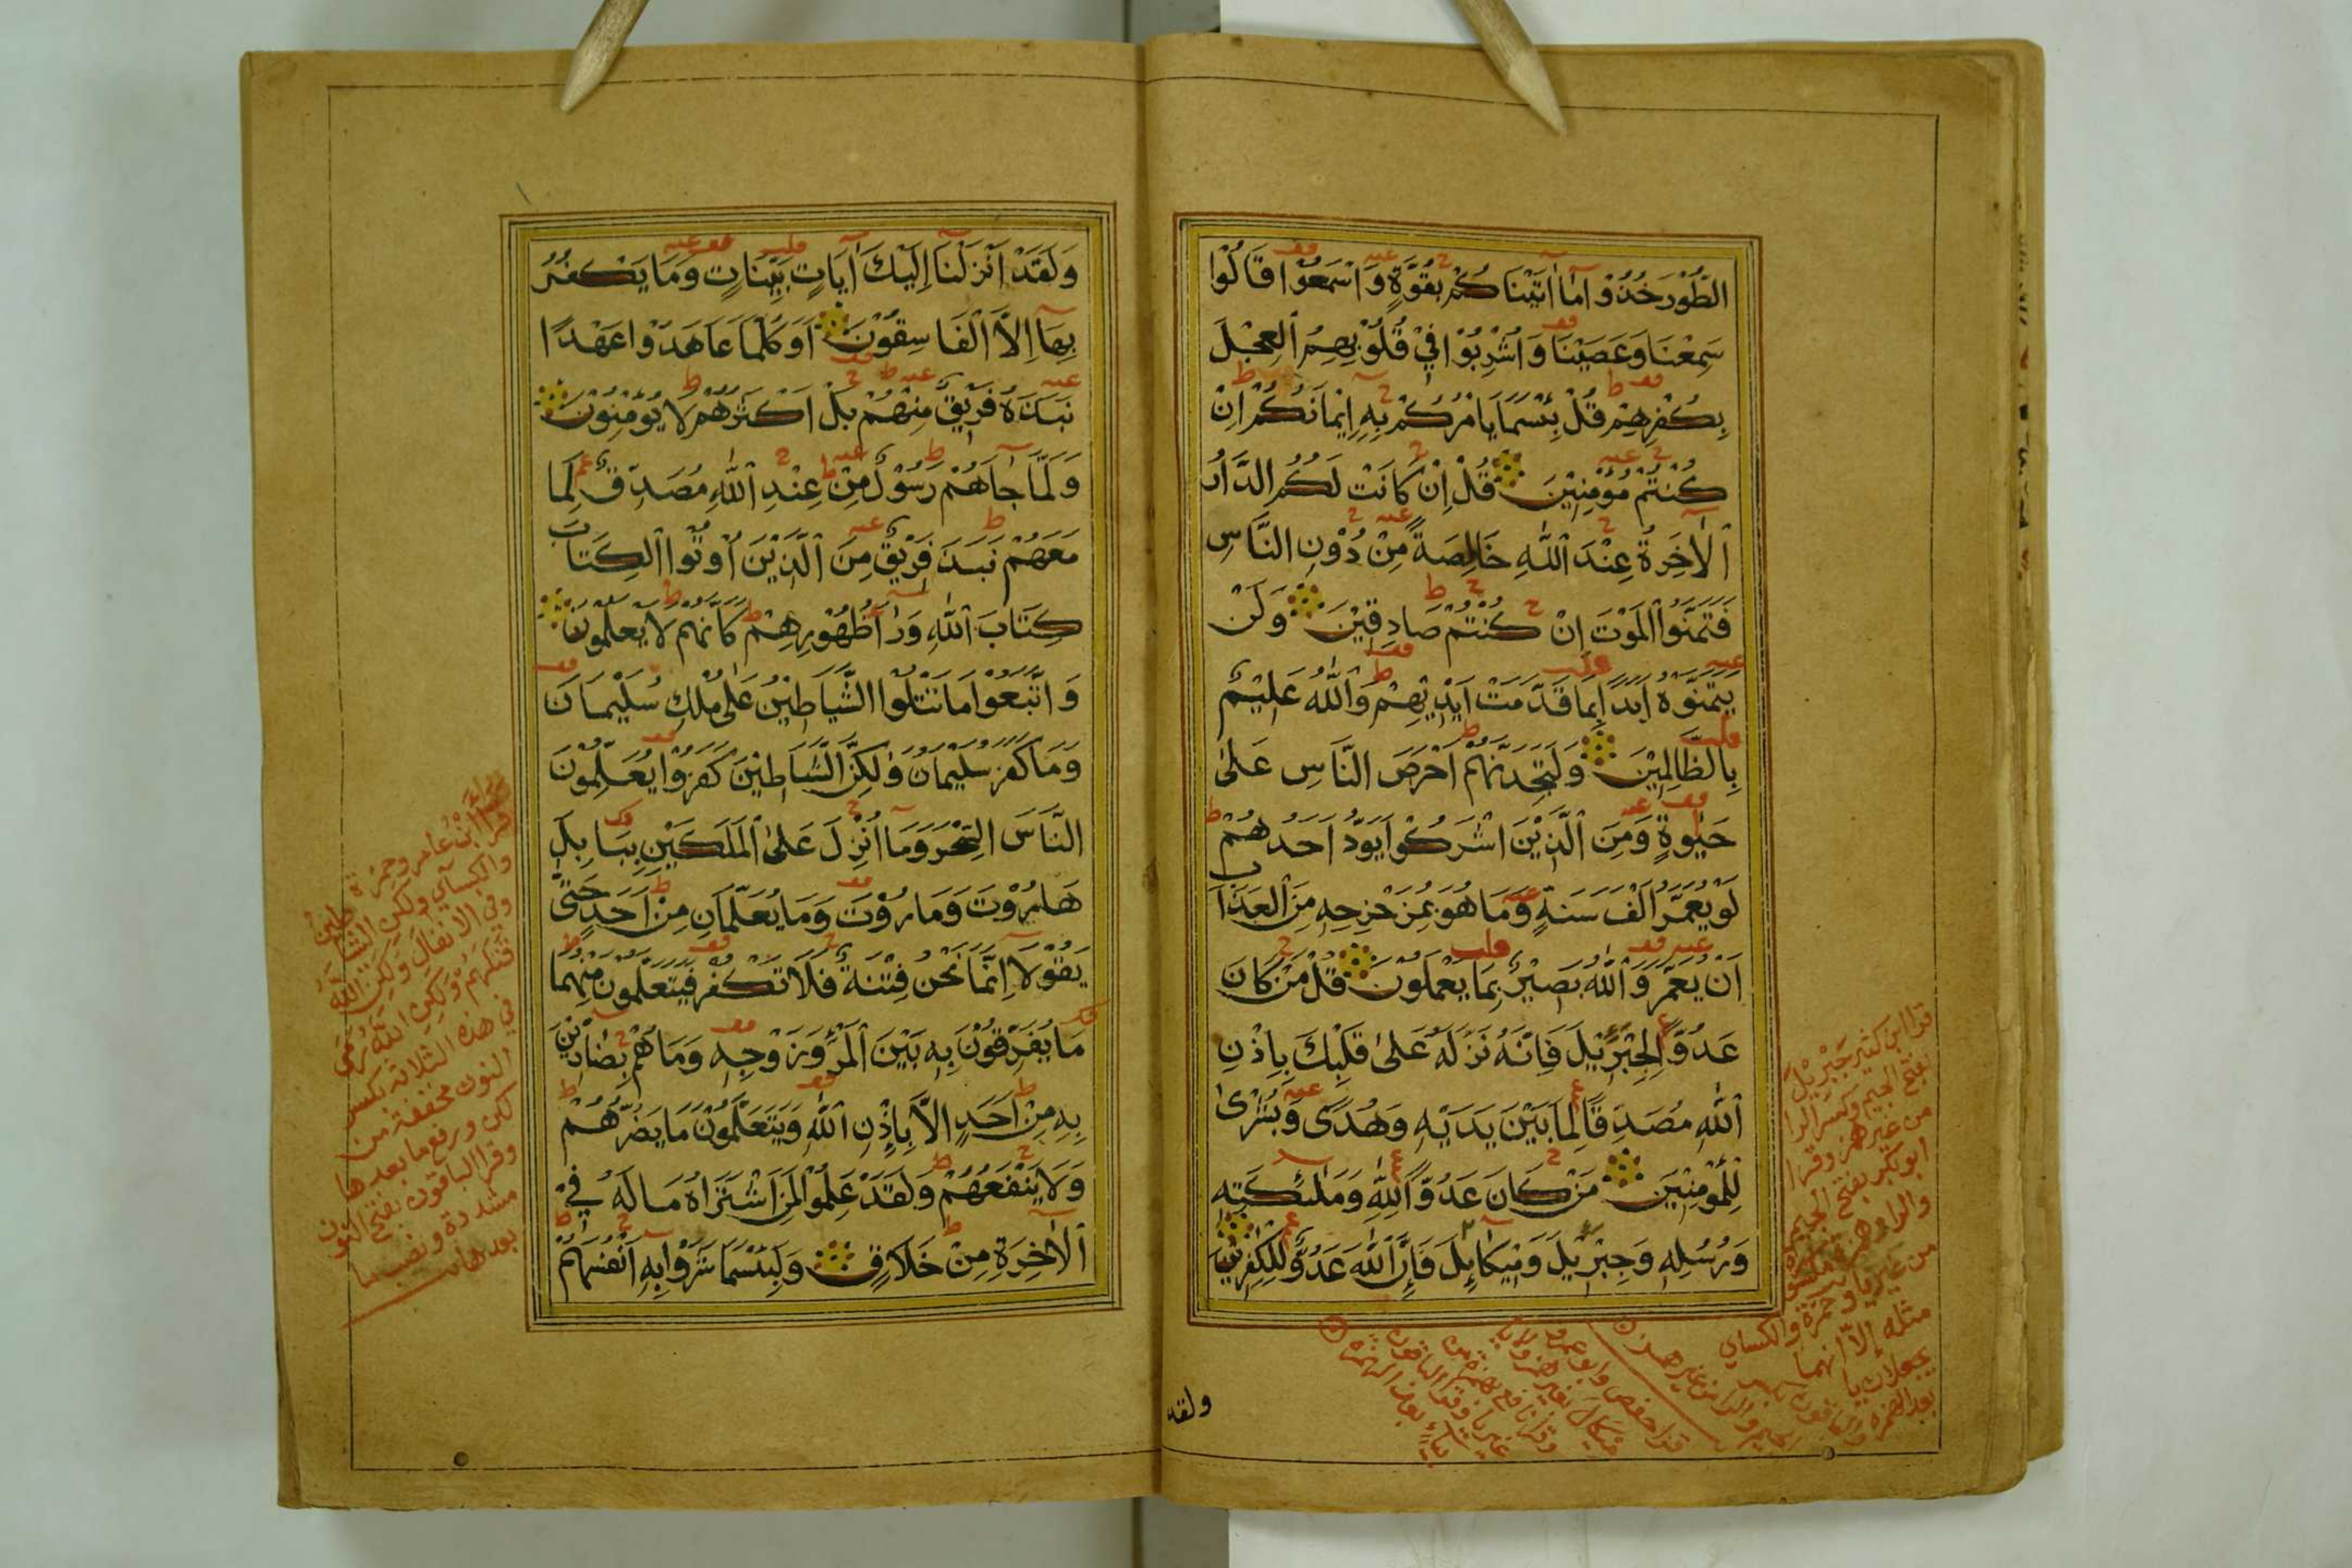 الطُّوْرَ خُذُوْا مَا اٰتَيْنَاكُمْ بِقُوَّةٍ وَاسْمَعُوْا قَالُوْا
سَمِعْنَا وَعَصَيْنَا وَاُشْرِبُوْا فِيْ قُلُوْبِهِمُ الْعِجْلَ
بِكُفْرِهِمْ قُلْ بِئْسَمَا يَامُرُكُمْ بِهِ اِيْمَانُكُمْ اِنْ
كُنْتُمْ مُؤْمِنِيْنَ قُلْ اِنْ كَانَتْ لَكُمُ الدَّارُ
الْاٰخِرَةُ عِنْدَ اللّٰهِ خَالِصَةً مِنْ دُوْنِ النَّاسِ
فَتَمَنَّوُا الْمَوْتَ اِنْ كُنْتُمْ صَادِقِيْنَ وَلَنْ
يَتَمَنَّوْهُ اَبَدًا بِمَا قَدَّمَتْ اَيْدِيْهِمْ وَاللّٰهُ عَلِيْمٌ
بِالظَّالِمِيْنَ وَلَتَجِدَنَّهُمْ اَحْرَصَ النَّاسِ عَلىٰ
حَيٰوةٍ وَمِنَ الَّذِيْنَ اَشْرَكُوْا يَوَدُّ اَحَدُهُمْ
لَوْ يُعَمَّرُ اَلْفَ سَنَةٍ وَمَا هُوَ بِمُزَحْزِحِهِ مِنَ الْعَذَابِ
اَنْ يُعَمَّرَ وَاللّٰهُ بَصِيْرٌ بِمَا يَعْمَلُوْنَ قُلْ مَنْ كَانَ
عَدُوًّا لِجِبْرِيْلَ فَاِنَّهُ نَزَّلَهُ عَلىٰ قَلْبِكَ بِاِذْنِ
اللّٰهِ مُصَدِّقًا لِمَا بَيْنَ يَدَيْهِ وَهُدًى وَبُشْرىٰ
لِلْمُؤْمِنِيْنَ مَنْ كَانَ عَدُوًّا لِلّٰهِ وَمَلٰئِكَتِهِ
وَرُسُلِهِ وَجِبْرِيْلَ وَمِيْكَائِلَ فَاِنَّ اللّٰهَ عَدُوٌّ لِلْكٰفِرِيْنَ
ولقد
قرا ابن كثير جَبْرِيْلَ
بفتح الجيم وكسر الرا
من غير همز وقرا
ابو بكر بفتح الجيم
وَلَقَدْ اَنْزَلْنَا اِلَيْكَ اٰيَاتٍ بَيِّنَاتٍ وَمَا يَكْفُرُ
بِهَا اِلَّا الْفَاسِقُوْنَ اَوَكُلَّمَا عَاهَدُوْا عَهْدًا
نَبَذَهُ فَرِيْقٌ مِنْهُمْ بَلْ اَكْثَرُهُمْ لَا يُؤْمِنُوْنَ
وَلَمَّا جَاهُمْ رَسُوْلٌ مِنْ عِنْدِ اللّٰهِ مُصَدِّقٌ لِمَا
مَعَهُمْ نَبَذَ فَرِيْقٌ مِنَ الَّذِيْنَ اُوْتُوا الْكِتَابَ
كِتَابَ اللّٰهِ وَرَا ظُهُوْرِهِمْ كَاَنَّهُمْ لَا يَعْلَمُوْنَ
وَاتَّبَعُوْا مَا تَتْلُوا الشَّيَاطِيْنُ عَلىٰ مُلْكِ سُلَيْمَانَ
وَمَا كَفَرَ سُلَيْمَانُ وَلٰكِنَّ الشَّيَاطِيْنَ كَفَرُوْا يُعَلِّمُوْنَ
النَّاسَ السِّحْرَ وَمَا اُنْزِلَ عَلىٰ الْمَلَكَيْنِ بِبَابِلَ
هَارُوْتَ وَمَارُوْتَ وَمَا يُعَلِّمَانِ مِنْ اَحَدٍ حَتّىٰ
يَقُوْلَا اِنَّمَا نَحْنُ فِتْنَةٌ فَلَا تَكْفُرْ فَيَتَعَلَّمُوْنَ مِنْهُمَا
مَا يُفَرِّقُوْنَ بِهِ بَيْنَ الْمَرْءِ وَزَوْجِهِ وَمَا هُمْ بِضَارِّيْنَ
بِهِ مِنْ اَحَدٍ اِلَّا بِاِذْنِ اللّٰهِ وَيَتَعَلَّمُوْنَ مَا يَضُرُّهُمْ
وَلَا يَنْفَعُهُمْ وَلَقَدْ عَلِمُوْا لَمَنِ اشْتَرَاهُ مَا لَهُ فِيْ
الْاٰخِرَةِ مِنْ خَلَاقٍ وَلَبِئْسَمَا شَرَوْا بِهِ اَنْفُسَهُمْ
قرأ ابن عامر وحمزة
والكسآي ولكن الشياطين
وفي الانفال ولكن الله
قتلهم ولكن الله رمى
في هذه الثلاثة بكسر
النون مخففة من
لكن ورفع ما بعدها
وقرا الباقون بفتح النون
مشددة ونصب ما
بعدها